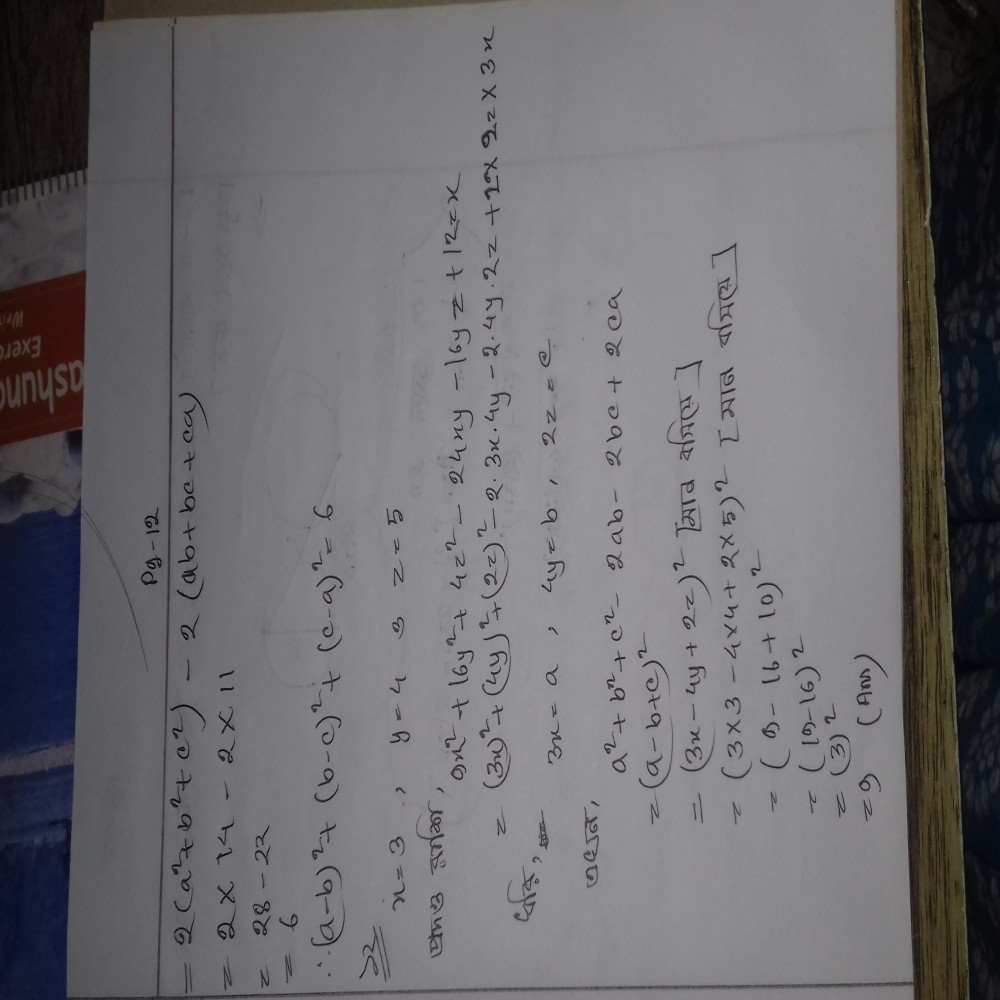 Pg-12
= 2(a²+b²+c²) - 2(ab+bc+ca)
= 2×14 - 2×11
= 28-22
= 6
∴(a-b)²+(b-c)²+(c-a)²=6
x=3, y=4 ও z=5
প্রদত্ত রাশি, 9x²+16y²+4z²-24xy-16yz+12zx
= (3x)²+(4y)²+(2z)²-2.3x.4y-2.4y.2z+2×2z×3x
ধরি, 3x=a, 4y=b, 2z=c
এখন,
a²+b²+c²-2ab-2bc+2ca
=(a-b+c)²
= (3x-4y+2z)² [মান বসিয়ে]
= (3×3-4×4+2×5)² [মান বসিয়ে]
= (9-16+10)²
= (19-16)²
= (3)²
=9 (Ans)
ashund
Exerc
Writ